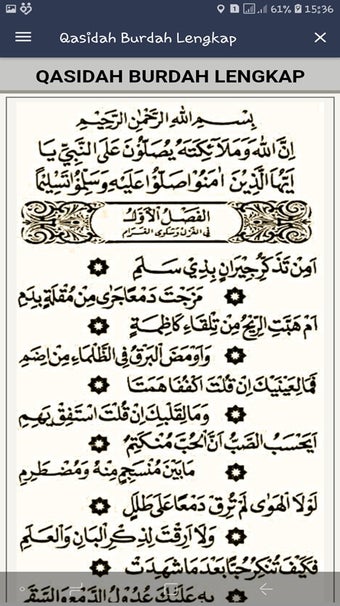 61% 15:36
Qasidah Burdah Lengkap
QASIDAH BURDAH LENGKAP
بِسْمِ اللهِ الرَّحْمٰنِ الرَّحِيْمِ
اِنَّ اللهَ وَمَلَآئِكَتَهُ يُصَلُّوْنَ عَلَى النَّبِيِّ يَا
اَيُّهَا الَّذِيْنَ اٰمَنُوْا صَلُّوْا عَلَيْهِ وَسَلِّمُوْا تَسْلِيْمًا
اَلْفَصْلُ الْاَوَّلُ
فِي الْغَزَلِ وَشَكْوَى الْغَرَامِ
اَمِنْ تَذَكُّرِ جِيْرَانٍ بِذِيْ سَلَمِ
مَزَجْتَ دَمْعًا جَرٰى مِنْ مُقْلَةٍ بِدَمِ
اَمْ هَبَّتِ الرِّيْحُ مِنْ تِلْقَاءِ كَاظِمَةٍ
وَاَوْمَضَ الْبَرْقُ فِي الظَّلْمَاءِ مِنْ اِضَمِ
فَمَا لِعَيْنَيْكَ اِنْ قُلْتَ اكْفُفَا هَمَتَا
وَمَا لِقَلْبِكَ اِنْ قُلْتَ اسْتَفِقْ يَهِمِ
اَيَحْسَبُ الصَّبُّ اَنَّ الْحُبَّ مُنْكَتِمٌ
مَا بَيْنَ مُنْسَجِمٍ مِنْهُ وَمُضْطَرِمِ
لَوْلَا الْهَوٰى لَمْ تُرِقْ دَمْعًا عَلٰى طَلَلٍ
وَلَا اَرِقْتَ لِذِكْرِ الْبَانِ وَالْعَلَمِ
فَكَيْفَ تُنْكِرُ حُبًّا بَعْدَ مَا شَهِدَتْ
بِهِ عَلَيْكَ عُدُوْلُ الدَّمْعِ وَالسَّقَمِ